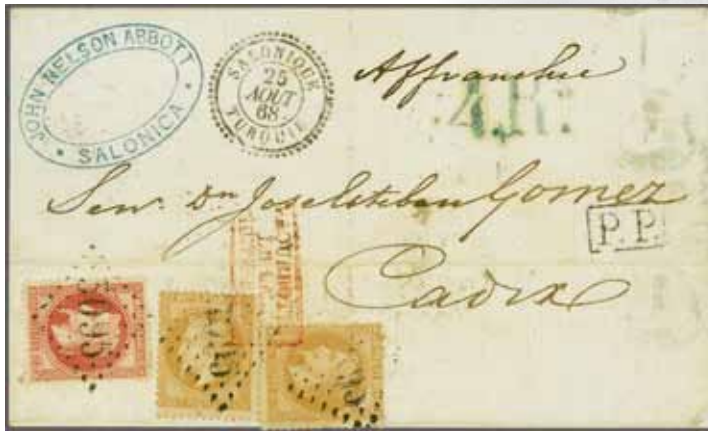 JOHN NELSON ABBOTT
SALONICA
SALONIQUE
25
AOUT
68
TURQUIE
Affranchie
4.R.
Senr. Dn Jose Esteban Gomez
P.P.
Cadix
5095